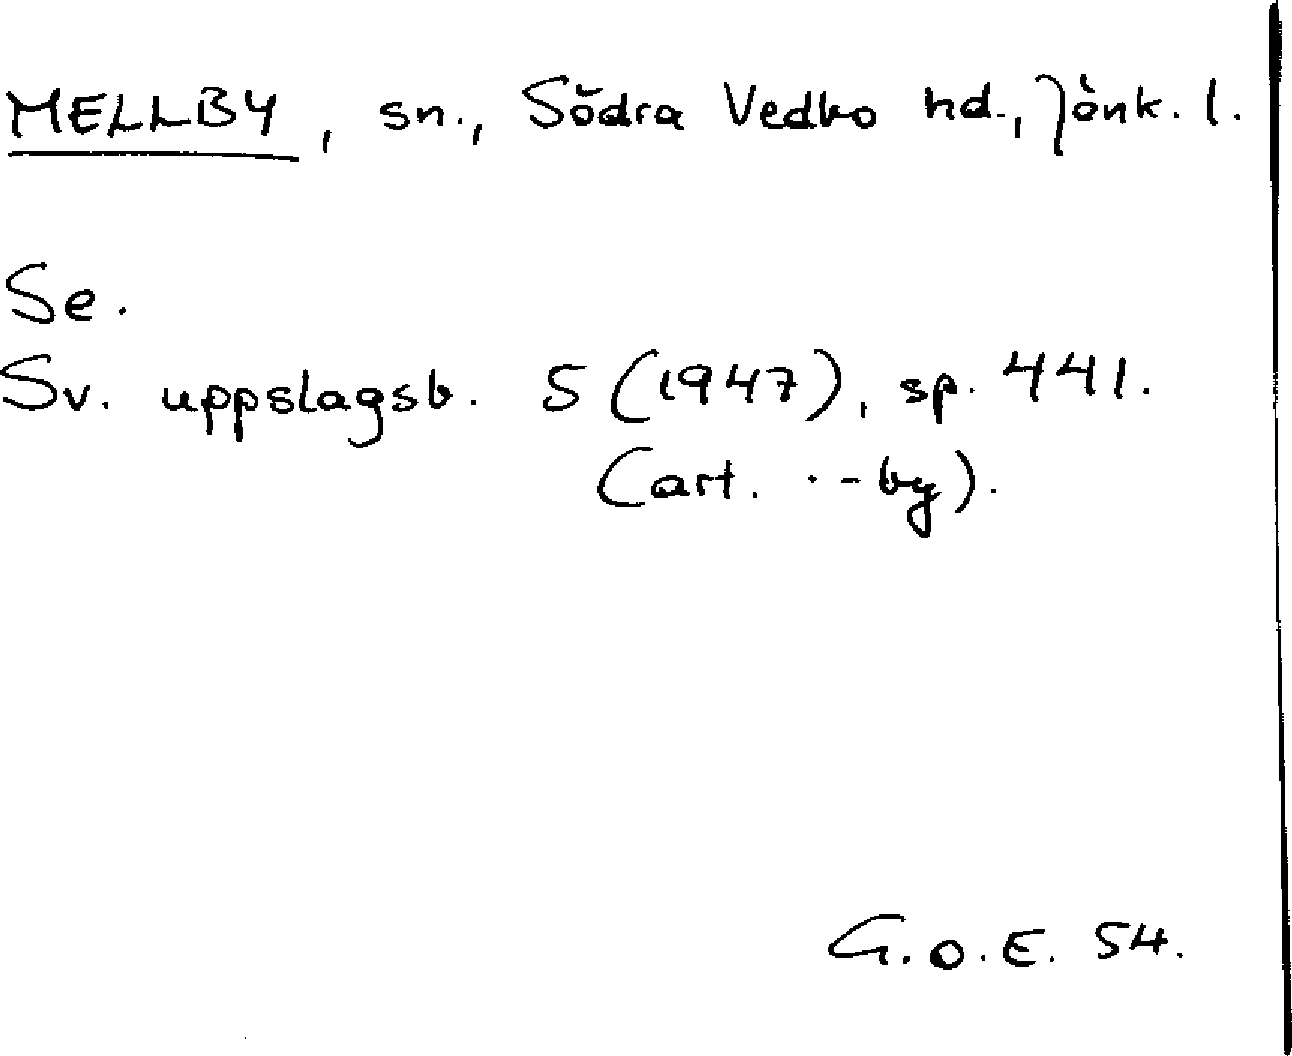 MELLBY, sn., Södra Vedbo hd., Jönk. l.
Se.
Sv. uppslagsb. 5 (1947), sp. 441.
(art. ··-by).
G.O.E. 54.